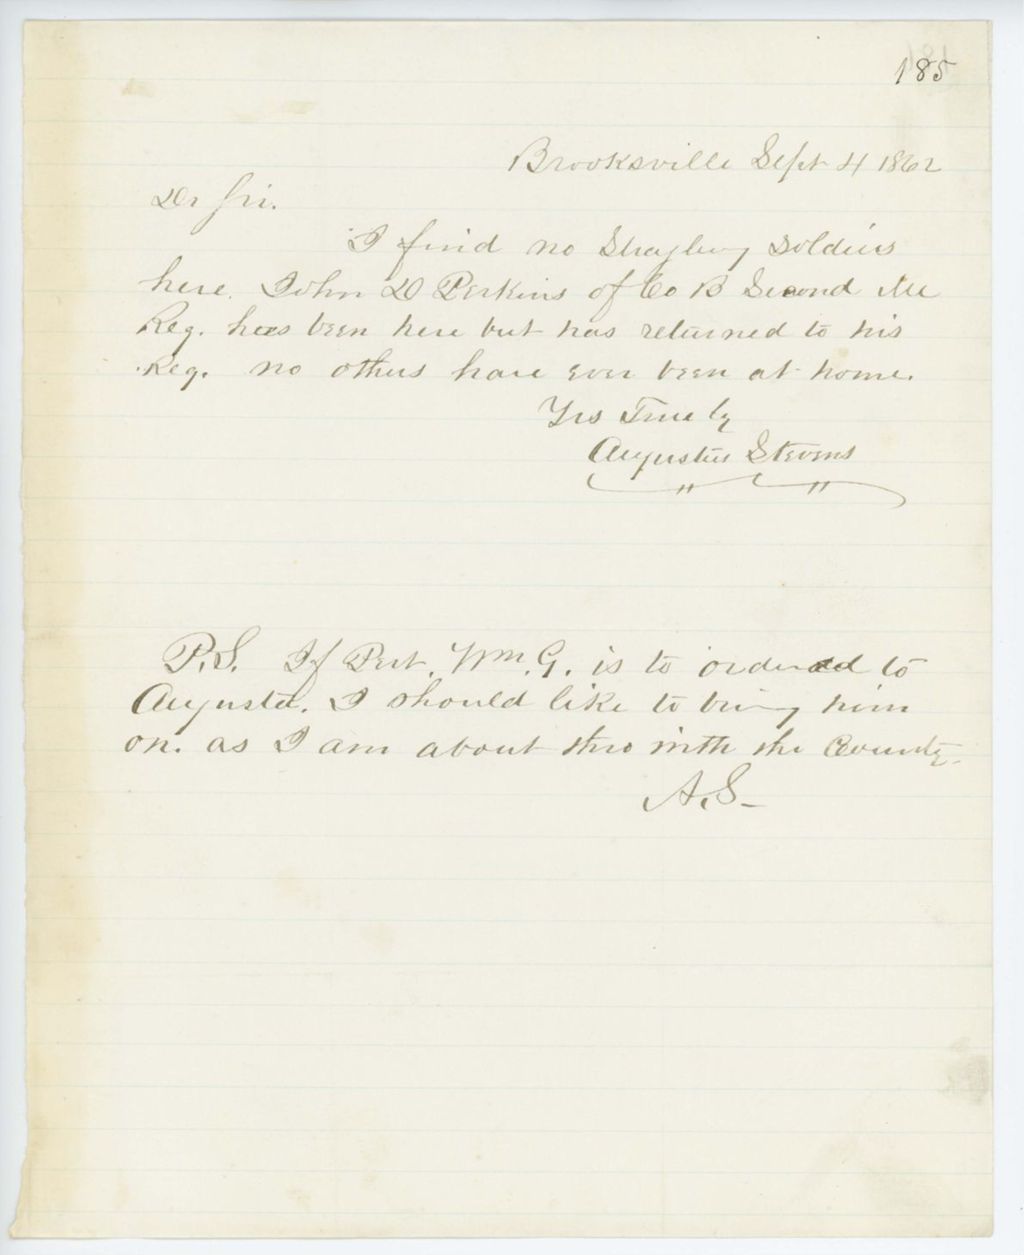 185
Brooksville Sept 4 1862
Dr Sir.
I find no Stragling Soldiers
here. John D Perkins of Co B Second Me
Reg. has been here but has returned to his
Reg. no others have ever been at home.
Yrs Truely
Augustus Stevens
P.S. If Wm. G. is to ordered to
Augusta. I should like to bring him
on. as I am about thro with the County.
A.S-